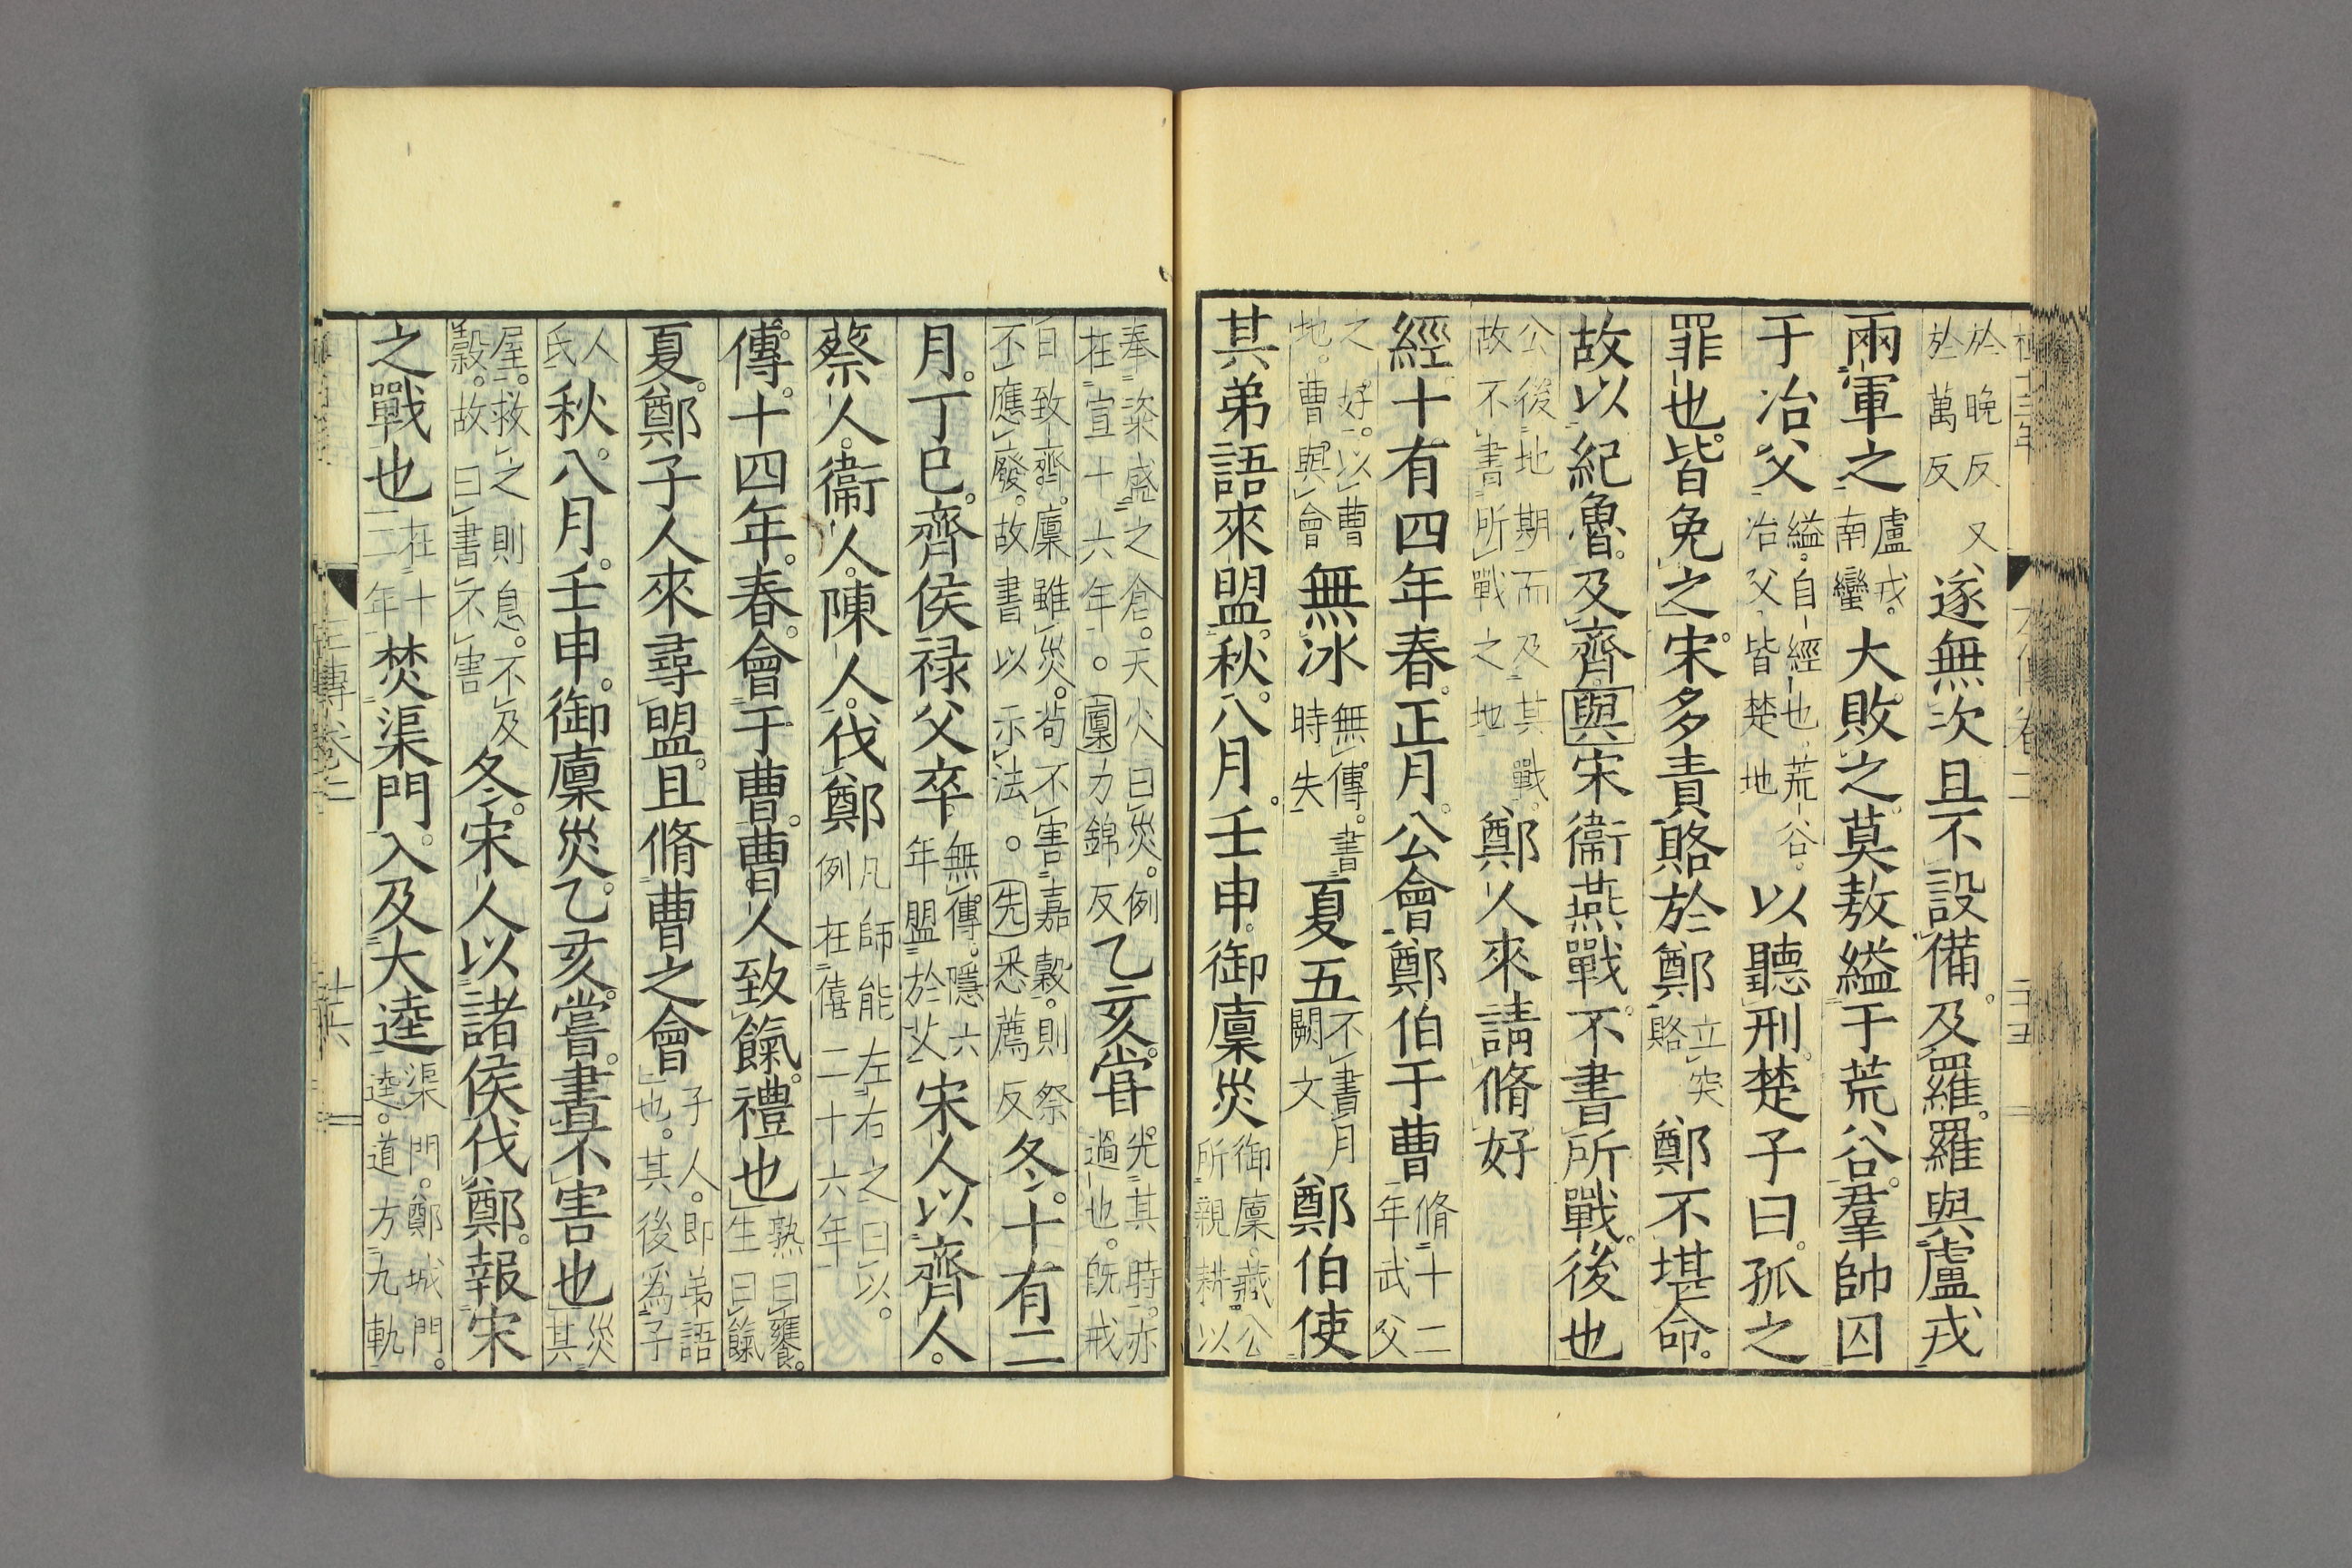 於晚反又於萬反遂無次且不設備。及羅。羅與盧戎
兩軍之盧戎。南蠻大敗之。莫敖縊于荒谷。羣帥囚
于冶父縊。自經也。荒谷。冶父。皆楚地以聽刑。楚子曰。孤之
罪也。皆免之。宋多責賂於鄭立突賂鄭不堪命。
故以紀魯。及齊與宋衞燕戰。不書所戰。後也
公後地期而及其戰。故不書所戰之地鄭人來請脩好
經十有四年春。正月。公會鄭伯于曹脩十二年武父
之好。以曹地。曹與會無冰無傳。書時失夏五不書月闕文鄭伯使
其弟語來盟。秋。八月。壬申。御廩災御廩。藏公所親耕以
奉粢盛之倉。天火曰災。例在宣十六年。。廩力錦反乙亥。嘗先其時。亦過也。旣戒
日致齊。廩雖災。苟不害嘉穀。則祭不應廢。故書以示法。。先悉薦反冬。十有二
月。丁巳。齊侯禄父卒無傳。隱六年盟於艾宋人以齊人。
蔡人。衞人。陳人。伐鄭凡師能左右之曰以。例在僖二十六年
傳。十四年。春。會于曹。曹人致餼。禮也熟曰饔。生曰餼
夏。鄭子人來尋盟。且脩曹之會子人。即弟語也。其後爲子
人氏秋。八月。壬申。御廩災。乙亥。嘗。書不害也災其
屋。救之則息。不及穀。故曰書不害冬。宋人以諸侯伐鄭。報宋
之戰也在十二年焚渠門。入及大逵渠門。鄭城門。逵。道方九軌